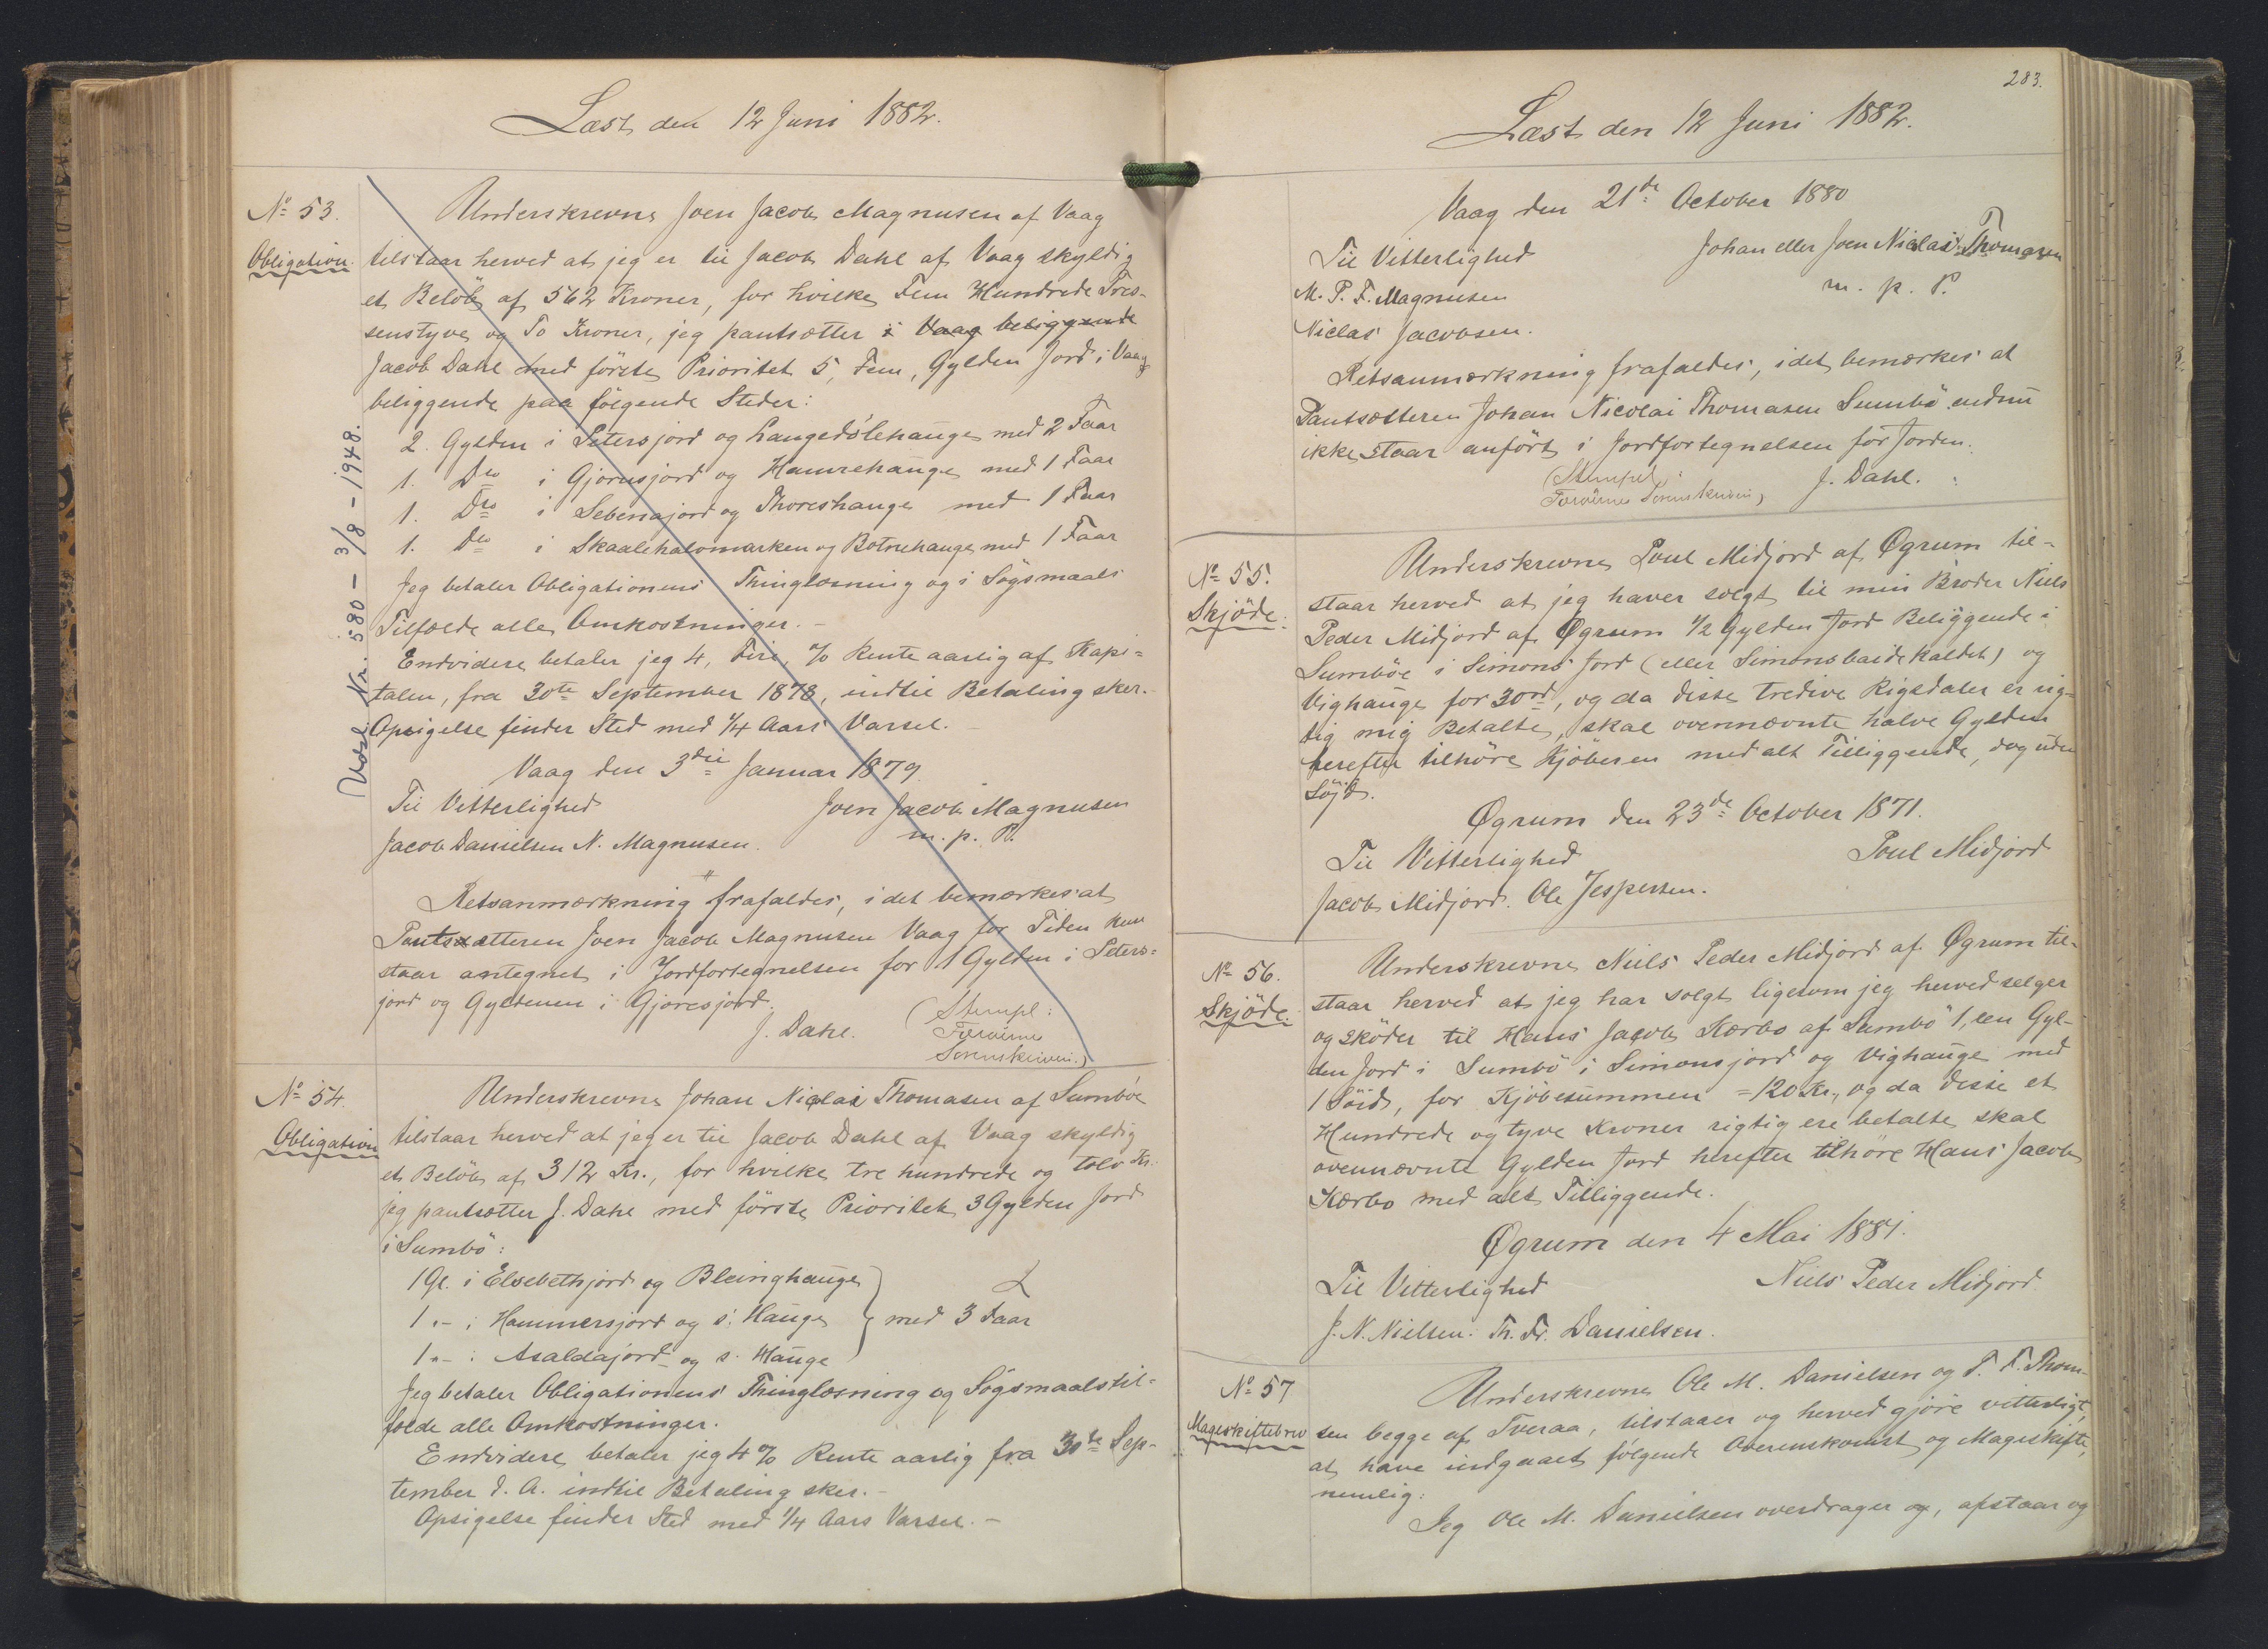 Læst den 12 Juni 1882.
No 53.
Obligation.
Underskrevne Joen Jacob Magnusen af Vaag
tilstaar herved at jeg er til Jacob Dahl af Vaag skyldig
et Beløb af 562 Kroner, for hvilke Fem Hundrede Tres-
senstyve og To Kroner, jeg pantsætter i Vaag beliggende
Jacob Dahl med förste Prioritet 5, Fem, Gylden Jord i Vaag
beliggende paa fölgende Steder:
2. Gylden i Petersjord og Langedølehauge med 2 Faar
1. Dto i Gjornsjord og Hamrehauge med 1 Faar
1. Dto i Sebenajord og Thoreshauge med 1 Faar
1. Dto i Skaalehalomarken og Botnehauge med 1 Faar
Jeg betaler Obligationens Thinglæsning og i Søgsmaals
Tilfælde alle Omkostninger. –
Endvidere betaler jeg 4, Fire, % Rente aarlig af Kapi=
talen, fra 30te September 1878, indtil Betaling sker. –
Opsigelse finder Sted med 1/4 Aars Varsel. –
Vaag den 3die Januar 1879
Til Vitterlighed Joen Jacob Magnusen
Jacob Danielsen N. Magnusen. m. p. P.
Retsanmærkning frafaldes, idet bemærkes at
Pantsætteren Joen Jacob Magnusen Vaag for Tiden kun
staar antegnet i Jordfortegnelsen for 1 Gylden i Peters=
jord og Gyldenen i Gjoresjord.
J. Dahl. (Stempl:
Færøerne
Sorenskriveri.)
Udsl. Nr. 580 – 3/8 – 1948.
No 54.
Obligation
Underskrevne Johan Nicolai Thomasen af Sumböe
tilstaar herved at jeg er til Jacob Dahl af Vaag skyldig
et Beløb af 312 Kr., for hvilke tre hundrede og tolv Kr.
jeg pantsætter J. Dahl med förste Prioritet 3 Gylden Jord
i Sumbö:
1 Gl. i Elsebethjord og Bleinghauge
1 "– i Hammersjord og s. Hauge } med 3 Faar
1 "– i Asaldajord og s. Hauge
Jeg betaler Obligationens Thinglæsning og Søgsmaalstil-
fælde alle Omkostninger.
Endvidere betaler jeg 4 % Rente aarlig fra 30te Sep-
tember d. A. indtil Betaling sker. –
Opsigelse finder Sted med 1/4 Aars Varsel. –
283.
Læst den 12 Juni 1882.
Vaag den 21de October 1880
Til Vitterlighed Johan eller Joen Niclai Thomasen
M. P. F. Magnusen m. p. P.
Niclas Jacobsen.
Retsanmærkning frafaldes, idet bemærkes at
Pantsætteren Johan Nicolai Thomasen Sumbö endnu
ikke staar anfört i Jordfortegnelsen for Jorden.
(Stempel: J. Dahl.
Færöerne Sorenskriveri)
No 55.
Skjöde.
Underskrevne Poul Midjord af Øgrum til-
staar herved at jeg haver solgt til min Broder Niels
Peder Midjord af Øgrum 1/2 Gylden Jord Beliggende i
Sumböe i Simons Jord (eller Simonsbaide kaldet) og
Vighauge for 30 rd, og da disse tredive Rigsdaler er rig-
tig mig Betalte, skal ovennævnte halve Gylden
herefter tilhöre Kjöberen med alt Tilliggende, dog uden
Söjd.
Øgrum den 23de October 1871.
Til Vitterlighed Poul Midjord
Jacob Midjord. Ole Jespersen.
No 56.
Skjöde.
Underskrevne Niels Peder Midjord af Øgrum til-
staar herved at jeg har solgt ligesom jeg herved selger
og sköder til Hans Jacob Kærbo af Sumbö 1, een Gyl-
den Jord i Sumbö i Simonsjord og Vighauge med
1 Söid, for Kjöbesummen = 120 Kr., og da disse et
Hundrede og tyve Kroner rigtig ere betalte skal
ovennævnte Gylden Jord herefter tilhöre Hans Jacob
Kærbo med alt Tilliggende.
Øgrum den 4 Mai 1881.
Til Vitterlighed Niels Peder Midjord
J. N. Nielsen. Th. Fr. Danielsen.
No 57
Mageskiftebrev
Underskrevne Ole M. Danielsen og T. F. Thom-
sen begge af Tveraa, tilstaaer og herved gjöre vitterligt,
at have indgaaet fölgende Overenskomst og Mageskifte,
nemlig:
Jeg Ole M. Danielsen overdrager og, afstaar og